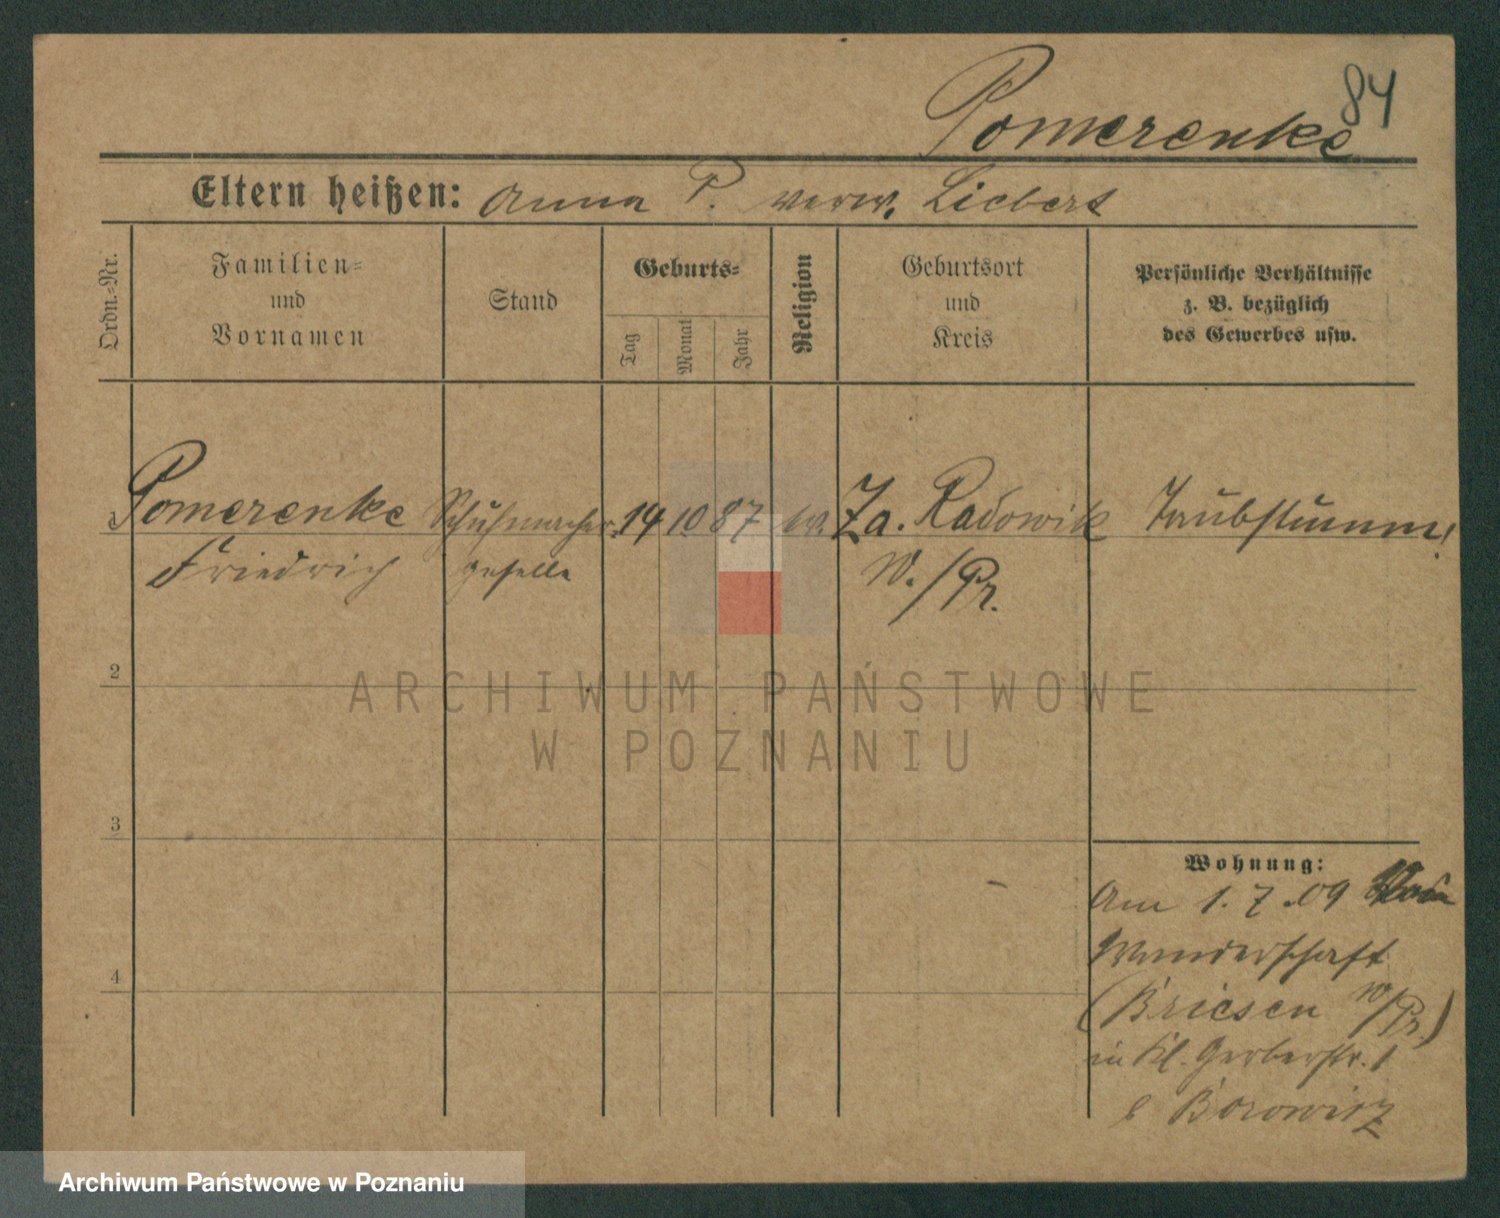 84
Pomerenke
Eltern heißen: Anna P. verw. Liebert
Ordn.-Nr.
Familien-
und
Vornamen
Stand
Geburts-
Tag
Monat
Jahr
Religion
Geburtsort
und
Kreis
Persönliche Verhältnisse
z. B. bezüglich
des Gewerbes usw.
Pomerenke Schuhmacher 14 10 87 ev. Za. Radowik Taubstumm!
Friedrich geselle W./Pr.
2
ARCHIWUM PAŃSTWOWE
W POZNANIU
3
Wohnung:
Am 1. 7. 09
Wanderschaft
4
(Briesen W/Pr.)
in Kl. Gerberstr. 1
b Borowicz
Archiwum Państwowe w Poznaniu